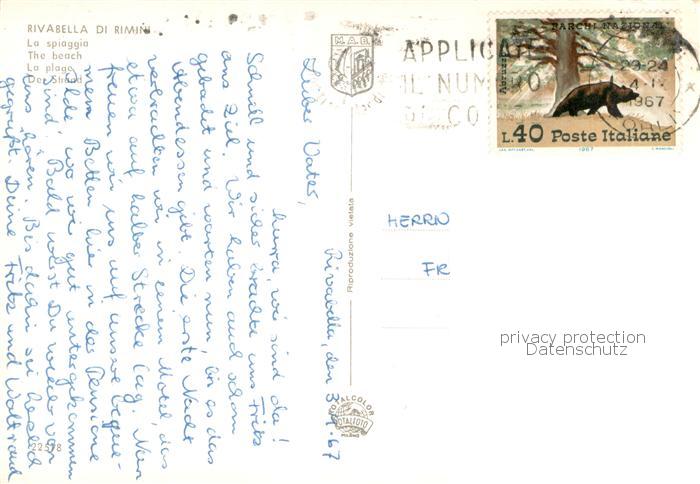 RIVABELLA DI RIMINI
La spiaggia
The beach
La plage
Der Strand
22578
Rivabella, den 3.9.67
Lieber Vater,
hurra, wir sind da!
Schnell und sicher brachte uns Fritz
ans Ziel. Wir haben auch schon
gebadet und warten nun, bis es das
Abendessen gibt. Die erste Nacht
verbrachten wir in einem Motel, das
etwa auf halber Strecke lag. Nun
freuen wir uns auf unsere beque-
men Betten hier in der Pension
Hilde, wo wir gut untergekommen
sind. Bald wirst Du wieder von
uns hören. Bis dahin sei herzlich
gegrüßt. Deine Fritz und Waltraud
M.A.B.
Riproduzione vietata
TOTALCOLOR
TOTALFOTO
MILANO
APPLICATE
IL NUMERO
DI CO
23-24
1967
PARCHI NAZIONALI
Abruzzo
L.40 Poste Italiane
1967
HERRN
FR
privacy protection
Datenschutz